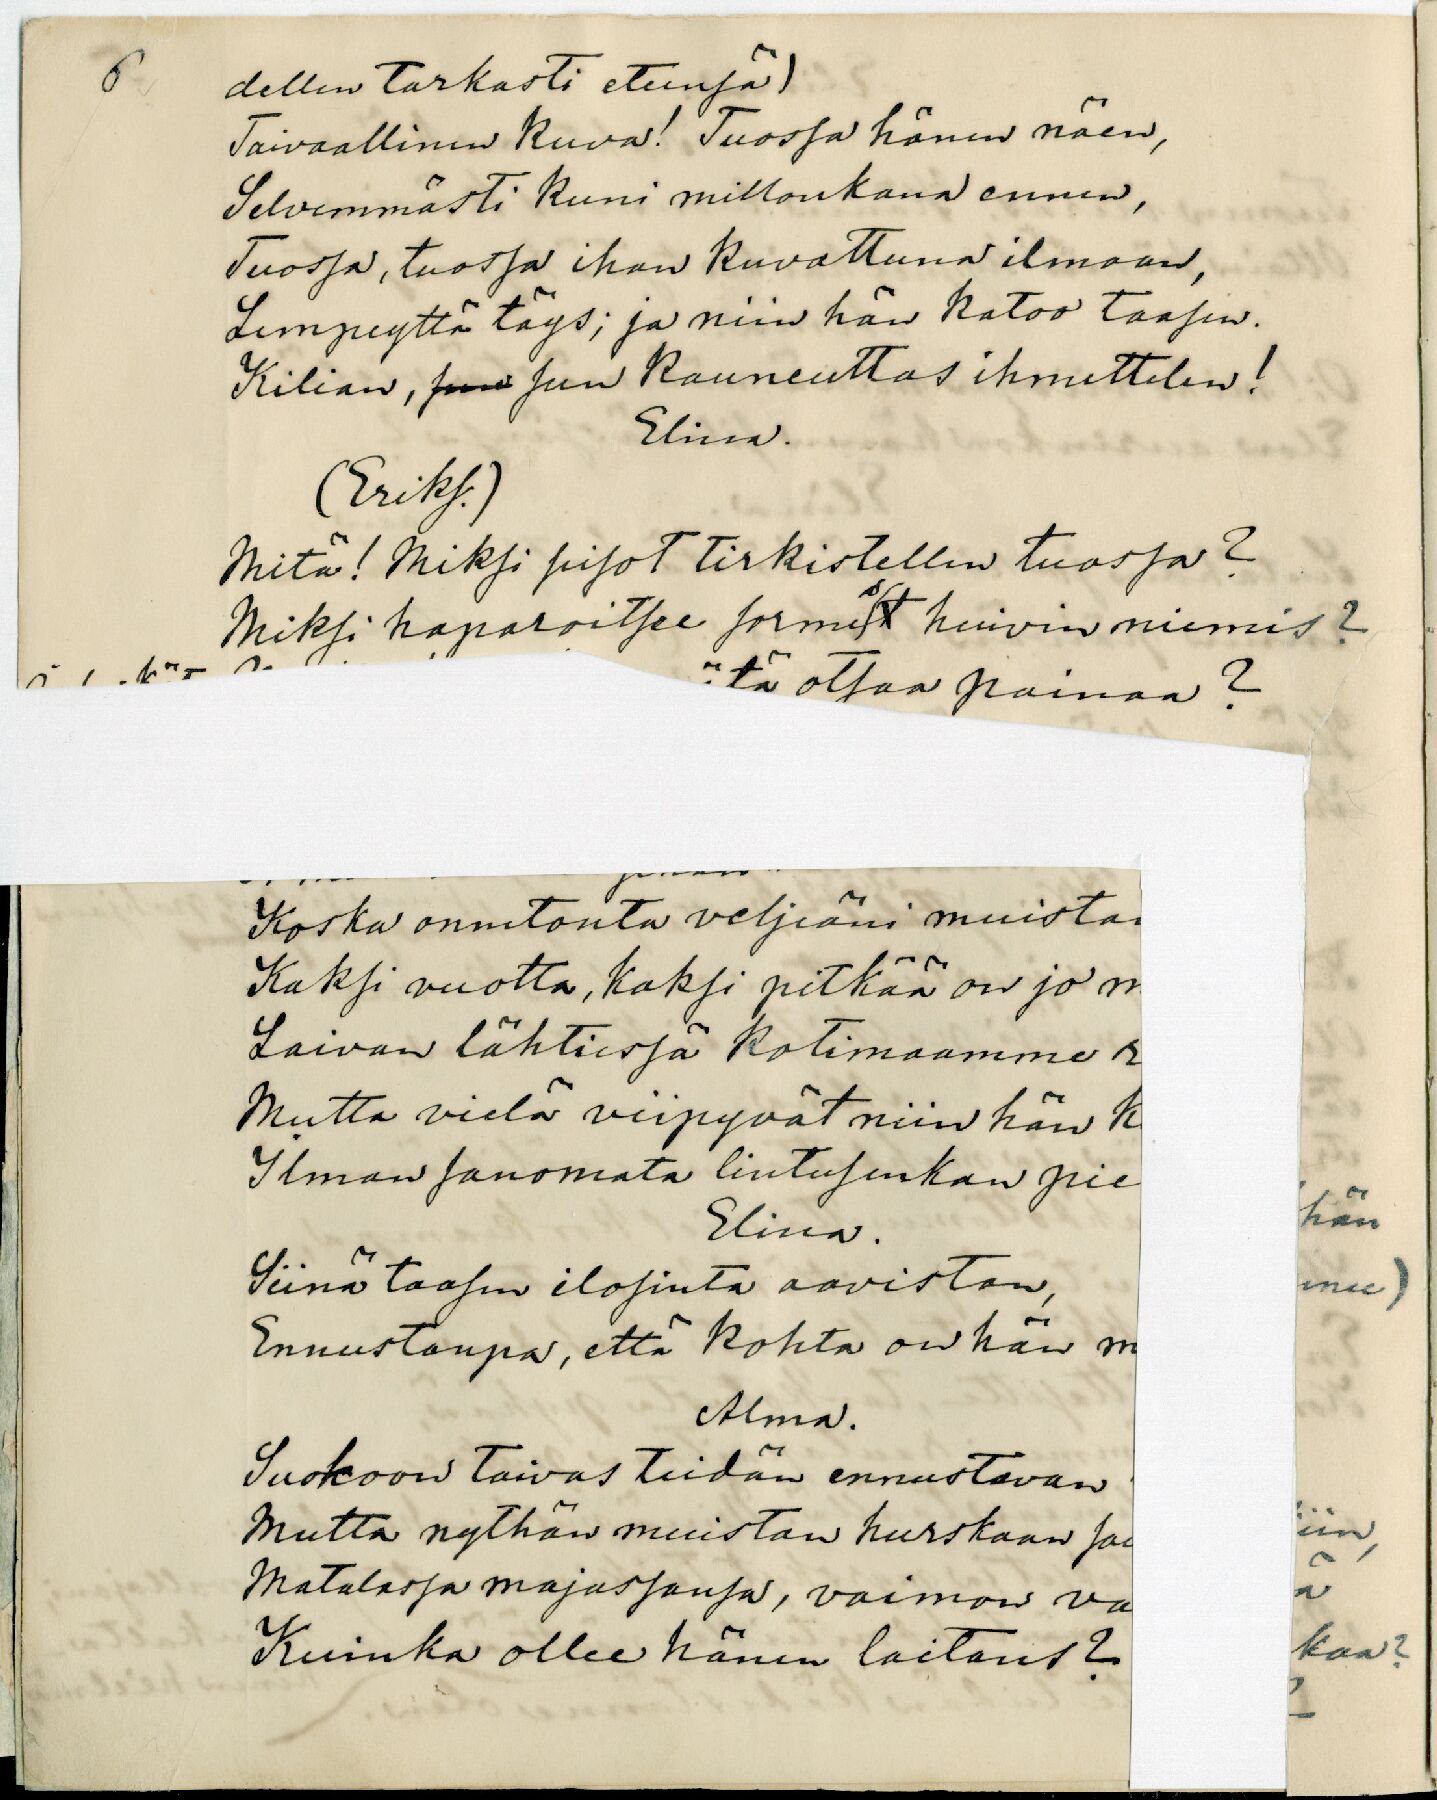 6
dellen tarkasti eteensä)
Taivaallinen kuva! Tuossa hänen näen,
Selvemmästi kuni milloinkana ennen,
Tuossa, tuossa ihan kuvattuna ilmaan,
Lempeyttä täys; ja niin hän katoo taasen.
Kilian, sun sun kauneuttas ihmettelen!
Elina.
(Eriks.)
Mitä! Miksi sisot tirkistellen tuossa?
Miksi haparoitsee sormes huivin niemis?
otsaa painaa?
Koska onnetonta veljeäni muistan
Kaksi vuotta, kaksi pitkää on jo m
Laivan lähtiessä kotimaamme r
Mutta vielä viipyvät niin hän k
Ilman sanomata lintusenkan pie
Elina.
Siinä taasen ilosinta aavistan,
Ennustanpa, että kohta on hän m
Alma.
Suokoon taivas teidän ennustavan
Mutta nythän muistan hurskaan sai
Matalassa majassansa, vaimon va
Kuinka ollee hänen laitans?
hän
nee)
iin,
ä
kaa?